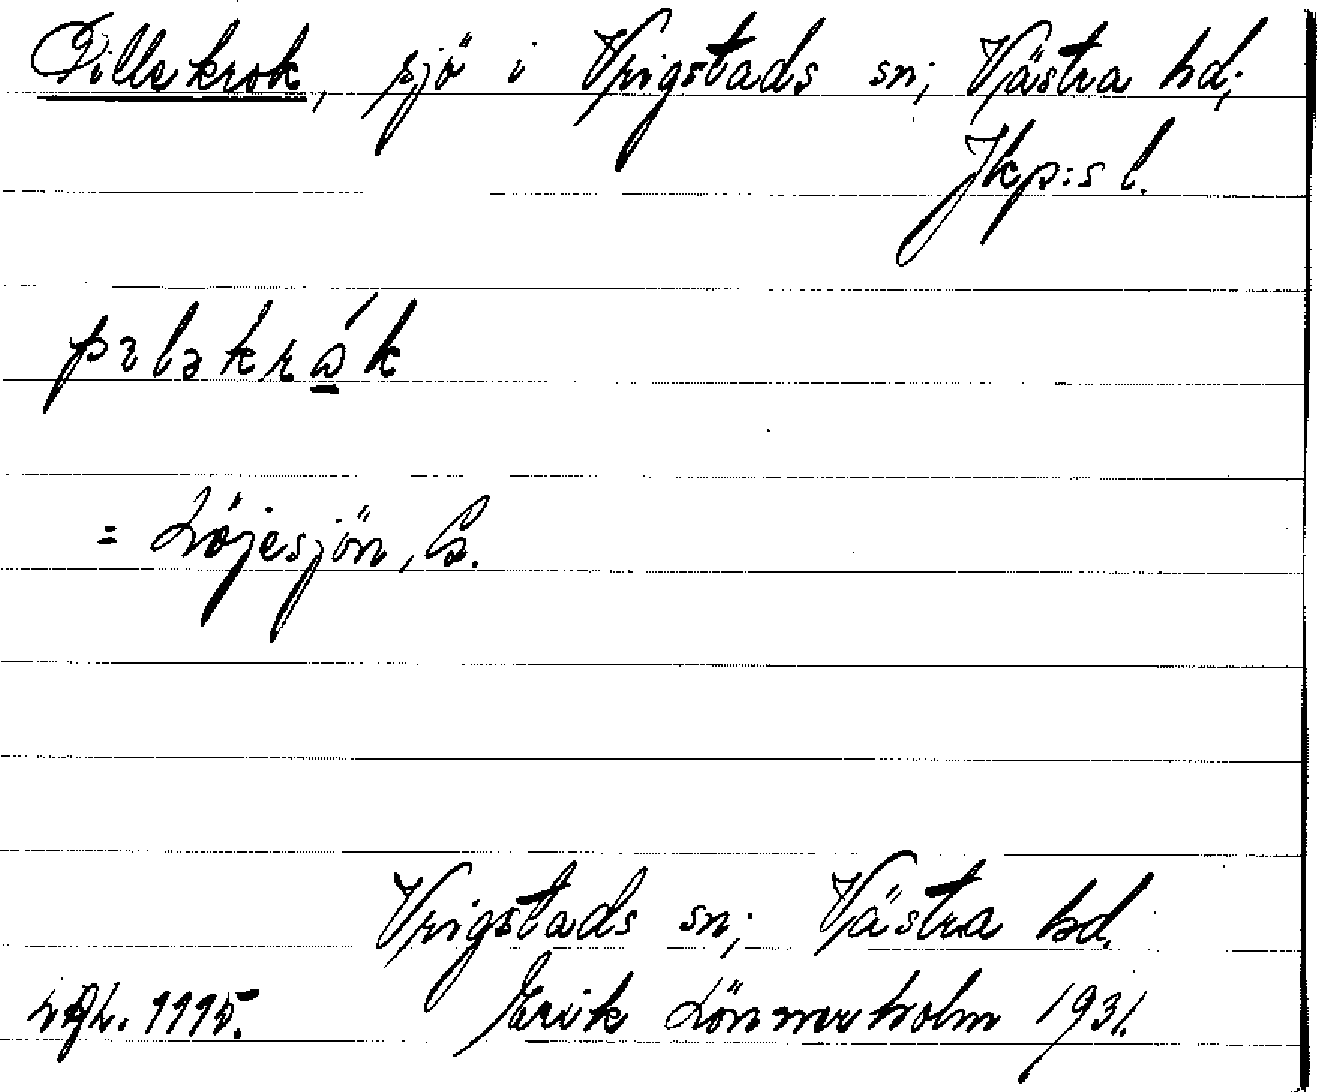 Pillekrok, sjö i Vrigstads sn; Västra hd;
Jkp:s l.
pɩləkrάk
= Löjesjön, G.
Vrigstads sn; Västra hd.
1115. Erik Lönnerholm 1931.